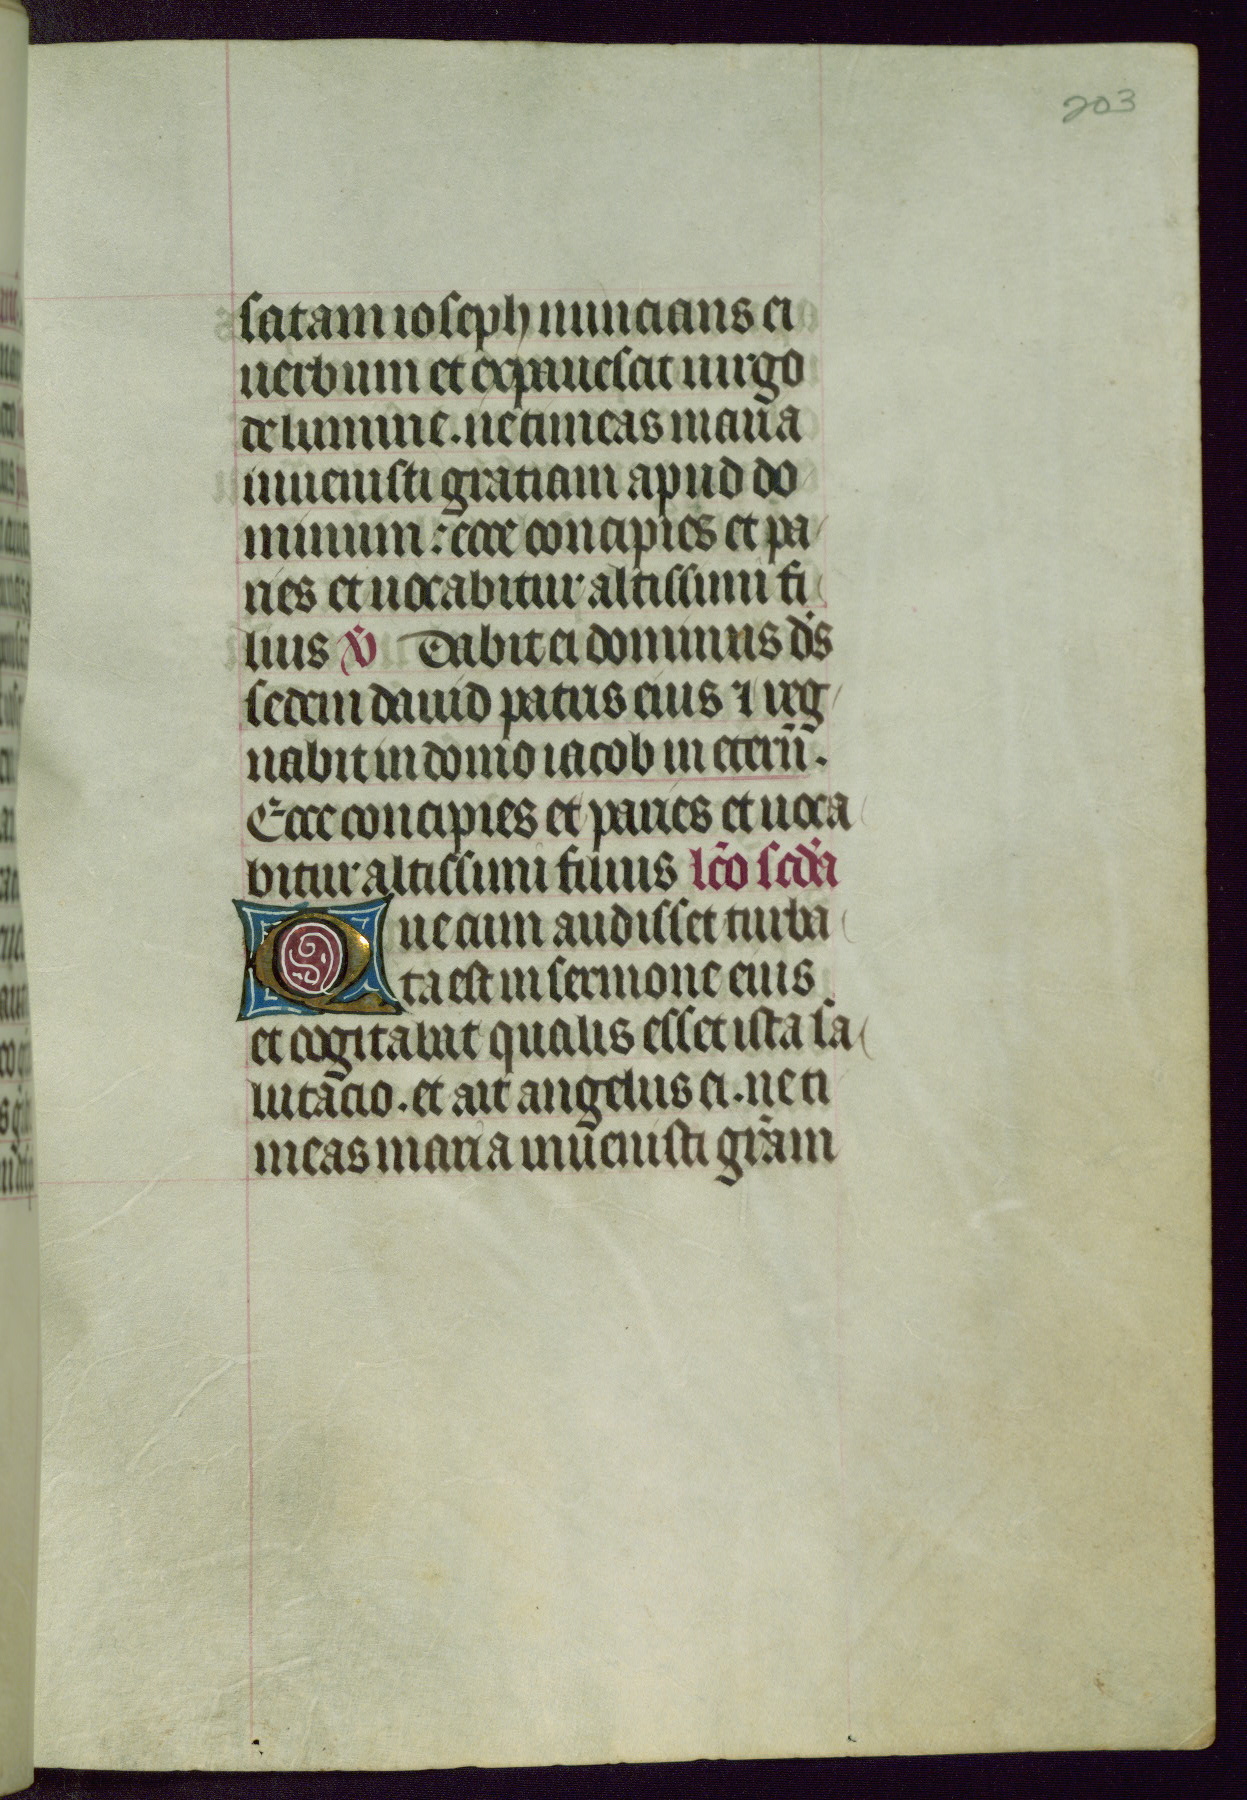 203
satam ioseph nuncians ei
uerbum et expauescit uirgo
de lumine. ne timeas maria
inuenisti gratiam apud do
minum: ecce concipies et pa
ries et uocabitur altissimi fi
lius v̄ Dabit ei dominus dn̄s
sedem dauid patris eius ⁊ reg
nabit in domo iacob in etern̄.
Ecce concipies et paries et uoca
bitur altissimi filius lc̄o scd̄a
Que cum audisset turba
ta est in sermone eius
et cogitabat qualis esset ista sa
lutacio. et ait angelus ei. ne ti
meas maria inuenisti grām